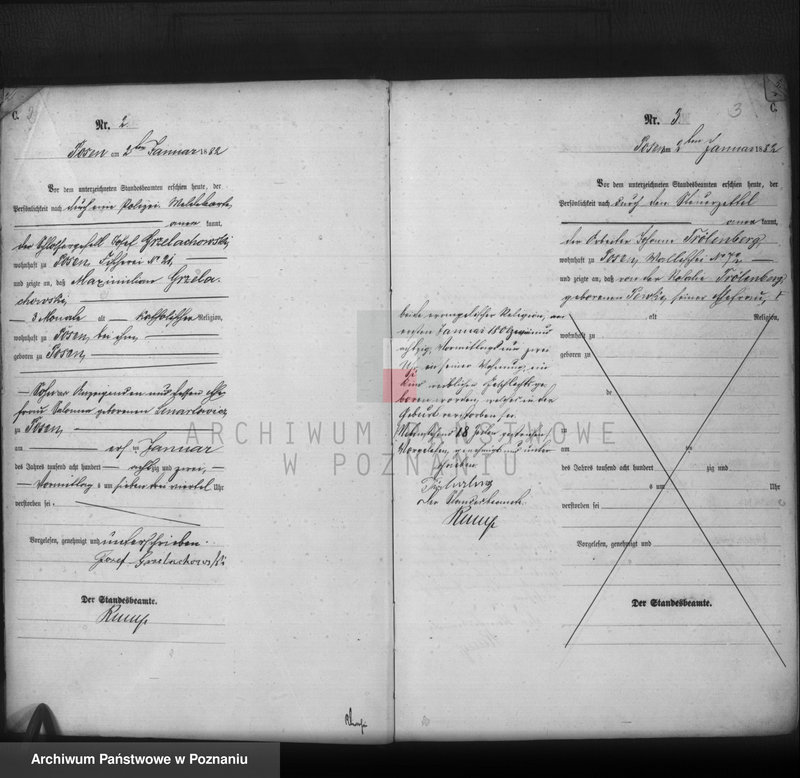 C. 2
Nr. 2
Posen am 2ten Januar 1882
Vor dem unterzeichneten Standesbeamten erschien heute, der
Persönlichkeit nach durch eine Polizei Meldekarte
aner kannt,
der Schlossergesell Josef Grzelachowski
wohnhaft zu Posen, Fischerei No 21
und zeigte an, daß Maximilian Grzela-
chowski
3 Monate alt katholischer Religion,
wohnhaft zu Posen, bei ihm,
geboren zu Posen,
Sohn des Anzeigenden und dessen Ehe-
frau Salomea geborenen Lenartowicz
zu Posen,
am ersten Januar
des Jahres tausend acht hundert achtzig und zwei,
Vormittag s um sieben drei viertel Uhr
verstorben sei.
Vorgelesen, genehmigt und unterschrieben.
Josef Grzelachowski
Der Standesbeamte.
Rump
3 C.
Nr. 3.
Posen am 2ten Januar 1882
Vor dem unterzeichneten Standesbeamten erschien heute, der
Persönlichkeit nach durch den Steuerzettel
aner kannt,
der Arbeiter Johann Trölenberg
wohnhaft zu Posen, Wallischei No 72
und zeigte an, daß von der Natalie Trölenberg
geborenen seiner Ehefrau,
alt Religion,
wohnhaft zu
geboren zu
de
zu
am ten
des Jahres tausend acht hundert zig und
s um Uhr
verstorben sei
Vorgelesen, genehmigt und
Der Standesbeamte.
beide evangelischer Religion, am
ersten Januar und
achtzig, Vormittags um zwei
Uhr, in seiner Wohnung, ein
Kind weiblichen Geschlechts ge-
boren worden, welches in der
Geburt verstorben sei.
Vorstehend 18 gestrichen.
Vorgelesen, genehmigt und unter-
schrieben
Der Standesbeamte
Rump
ARCHIWUM PAŃSTWOWE
W POZNANIU
Archiwum Państwowe w Poznaniu